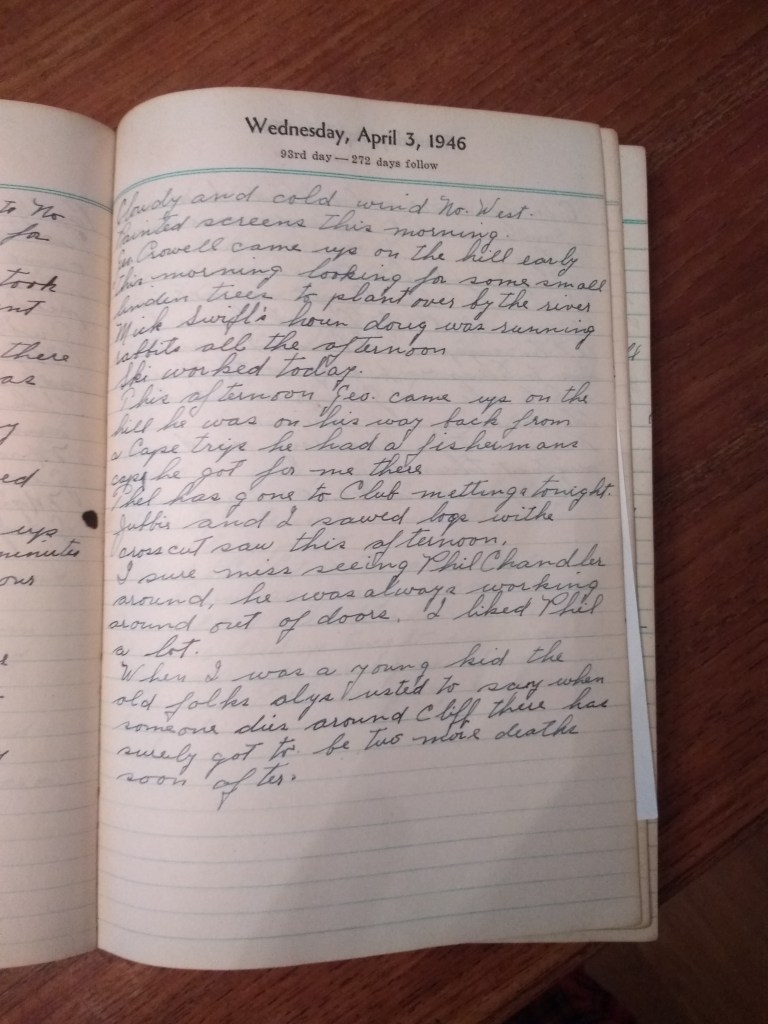 Wednesday, April 3, 1946
93rd day — 272 days follow
Cloudy and cold wind No. West.
Painted screens this morning.
Geo. Crowell came up on the hill early
this morning looking for some small
linden trees to plant over by the river
Mick Swift's houn doug was running
rabbits all the afternoon
Ski worked today.
This afternoon Geo. came up on the
hill he was on his way back from
a Cape trip he had a fishermans
cape he got for me there
Phil has gone to Club mettings tonight.
and I sawed logs withe
crosscut saw this afternoon.
I sure miss seeing Phil Chandler
around, he was always working
around out of doors. I liked Phil
a lot.
When I was a young kid the
old folks alys usted to say when
someone dies around Cliff there has
surely got to be two more deaths
soon after.
to No
for
took
there
as
ed
up
minutes
our